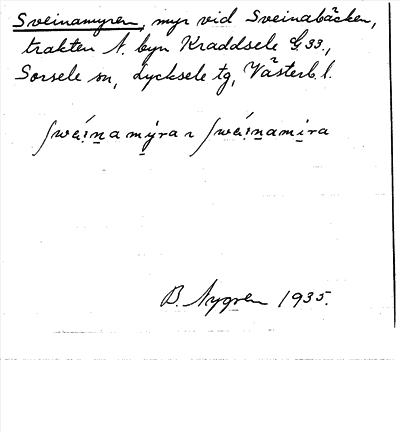 Sveinamyren, myr vid Sveinabäcken,
trakten N. byn Kraddsele G 33,
Sorsele sn, Lycksele tg, Västerb. l.
ʃwáina mýra ~ ʃwáinamíra
B. Nygren 1935.